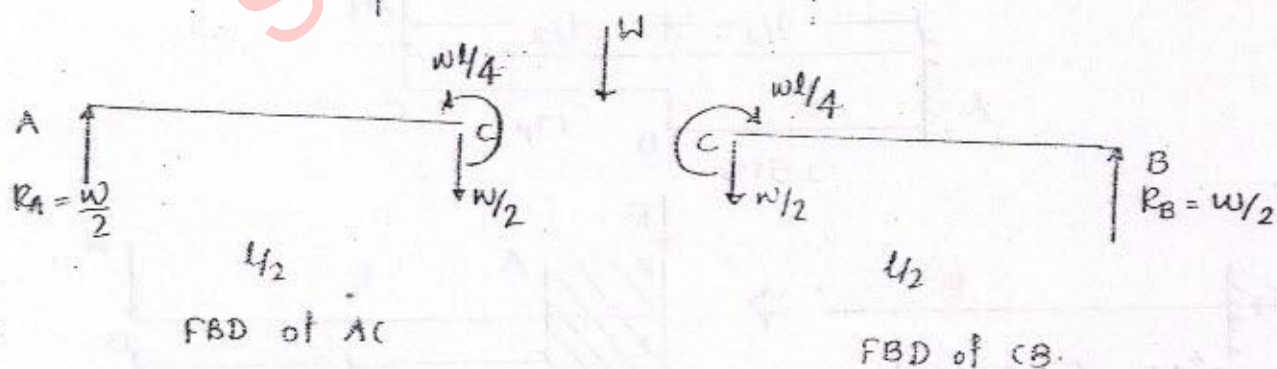 W
wl/4
wl/4
A
C
C
B
R_A = w/2
w/2
w/2
R_B = w/2
l/2
l/2
FBD of AC
FBD of CB.